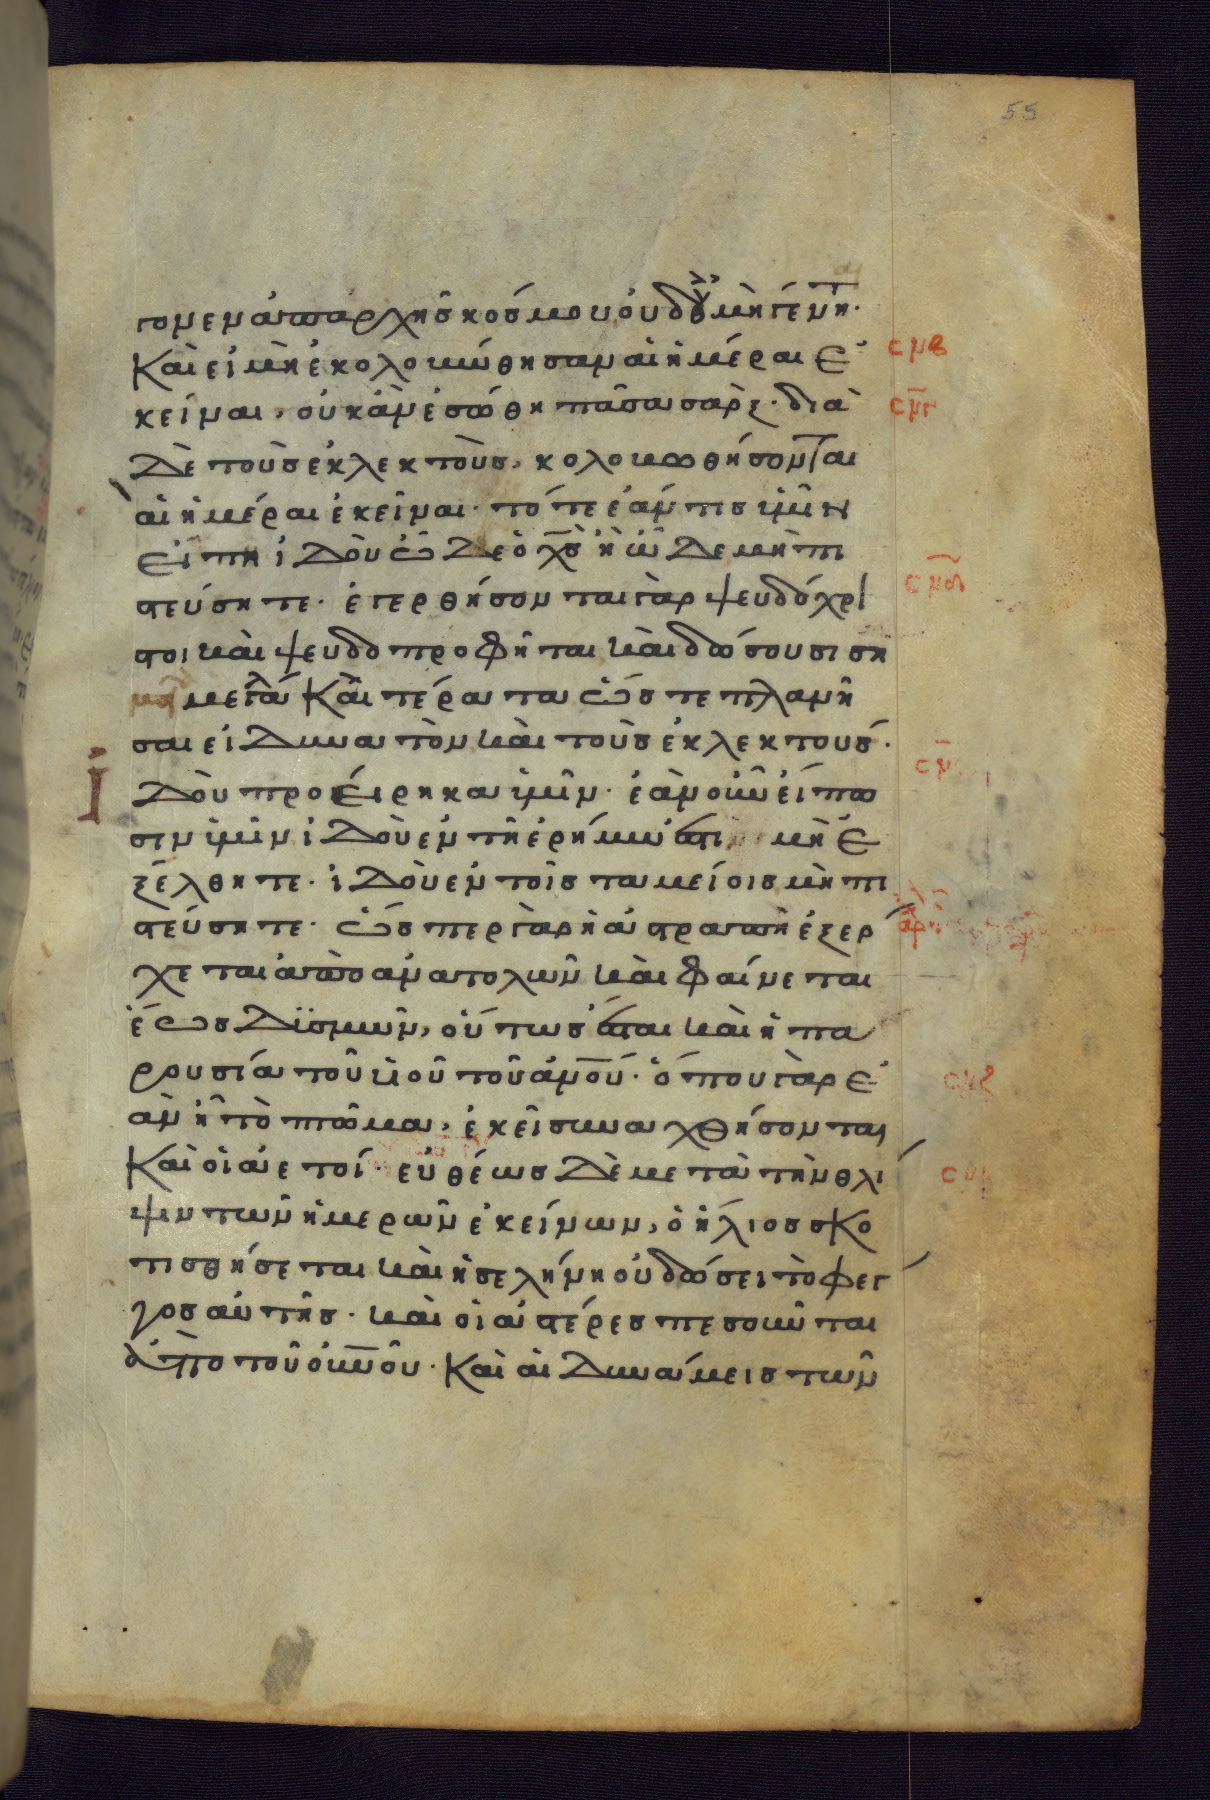 55
γομεν ἀπαρχῆς κόσμου οὐδοὐ μὴ γένη·
Καὶ εἰ μὴ ἐκολοκώθησαν αἱ ἡμέραι ἐ
κείναι, οὐκ ἂν ἐσώθη πᾶσα σάρξ· διὰ
Δὲ τοὺς ἐκλεκτοὺς, κολοκωθήσονται
αἱ ἡμέραι ἐκεῖναι· τότε ἐάν τις ὑμῖν
εἴπη ἰδοὺ ὧδε ὁ χ̅ς̅ ἢ ὧδε μὴ πι
στεύσητε· ἐγερθήσονται γὰρ ψευδόχρι
στοι καὶ ψευδοπροφῆται καὶ δώσουσι ση
μεγάλα Καὶ τέρατα ὥστε πλανῆ
σαι εἰ δυνατὸν καὶ τοὺς ἐκλεκτούς·
Ἰ
δοὺ προείρηκα ὑμῖν· ἐὰν οὖν εἴπω
σιν ὑμῖν ἰδοὺ ἐν τῇ ἐρήμω ἐστι μὴ ἐ
ξέλθητε· ἰδοὺ ἐν τοῖς ταμείοις μὴ πι
στεύσητε· ὥσπερ γὰρ ἡ ἀστραπὴ ἐξέρ
χεται ἀπὸ ἀνατολῶν καὶ φαίνεται
ἕως δϊσμῶν, οὕτως ἔσται καὶ ἡ πα
ρουσία τοῦ υἱοῦ τοῦ ἀν̅ο̅ύ· ὅπου γὰρ ἐ
ὰν ἦ τὸ πτῶμα, ἐκεῖ συναχθήσονται
Καὶ οἱ ἀετοί· εὐθέως δὲ μετὰ τὴν θλί
ψιν τῶν ἡμερῶν ἐκείνων, ὁ ἥλιος σκο
τισθήσεται καὶ ἡ σελήνη οὐ δώσει τὸ φεγ
γος αὐτῆς· καὶ οἱ ἀστέρες πεσοῦνται
ἀπὸ τοῦ οὐ̅ν̅οῦ· Καὶ αἱ δυνάμεις τῶν
σμβ
σμγ
σμδ